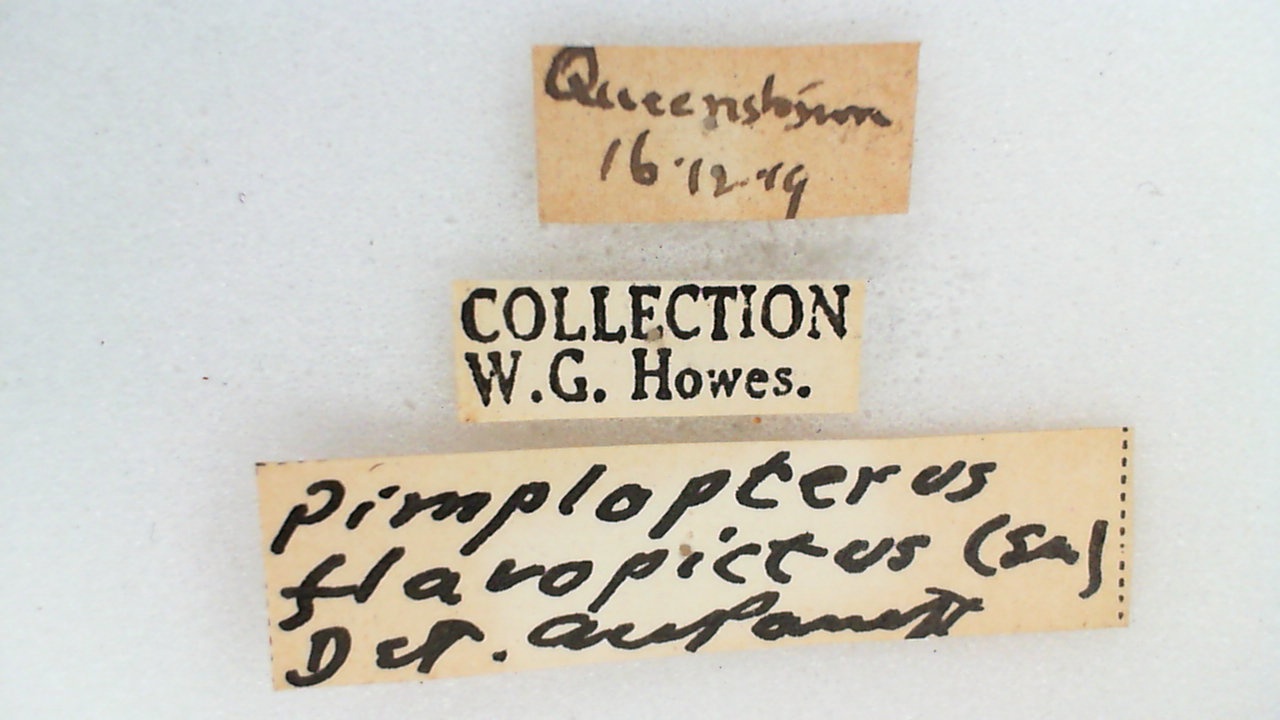 Queenstown
16.12.19
COLLECTION
W.G. Howes.
Pimplopterus
flavopictus (Sm)
Det.